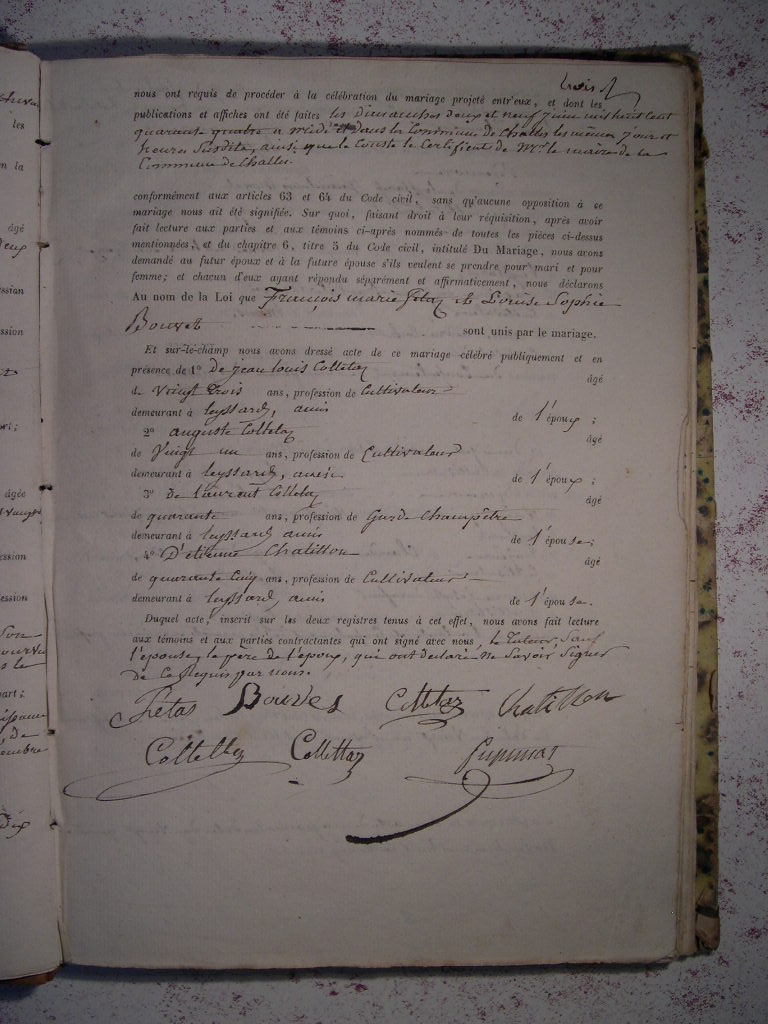 trois
nous ont requis de procéder à la célébration du mariage projeté entr'eux, et dont les
publications et affiches ont été faites les Dimanches deux et neuf juin mil huit cent
quarante quatre a midi et dans la Commune de Challes les mêmes jour et
heures susdite, ainsi que le Conste le Certificat de Mr le maire de la
Commune de Challes
conformément aux articles 63 et 64 du Code civil, sans qu'aucune opposition à ce
mariage nous ait été signifiée. Sur quoi, faisant droit à leur réquisition, après avoir
fait lecture aux parties et aux témoins ci-après nommés de toutes les pièces ci-dessus
mentionnées, et du chapitre 6, titre 5 du Code civil, intitulé Du Mariage, nous avons
demandé au futur époux et à la future épouse s'ils veulent se prendre pour mari et pour
femme; et chacun d'eux ayant répondu séparément et affirmativement, nous déclarons
Au nom de la Loi que François marie et Louise Sophie
Bouvet sont unis par le mariage.
Et sur-le-champ nous avons dressé acte de ce mariage célébré publiquement et en
présence de 1° De jean louis Colletaz âgé
de Vingt trois ans, profession de Cultivateur
demeurant à leyssard, amis de l'époux ;
2° auguste Colletaz âgé
de Vingt un ans, profession de Cultivateur
demeurant à leyssard, amis de l'époux ;
3° De laurent Colletaz âgé
de quarante ans, profession de Garde Champêtre
demeurant à leyssard amis de l'épouse;
4° D'etienne Chatillon âgé
de quarante Cinq ans, profession de Cultivateur
demeurant à leyssard, amis de l'épouse.
Duquel acte, inscrit sur les deux registres tenus à cet effet, nous avons fait lecture
aux témoins et aux parties contractantes qui ont signé avec nous, le Tuteur, Sauf
l'épouse, le père de l'époux, qui ont déclaré ne Savoir Signer
de Ce Requis par nous.
Bouves Colletaz Chatillon
Collettaz Collettaz